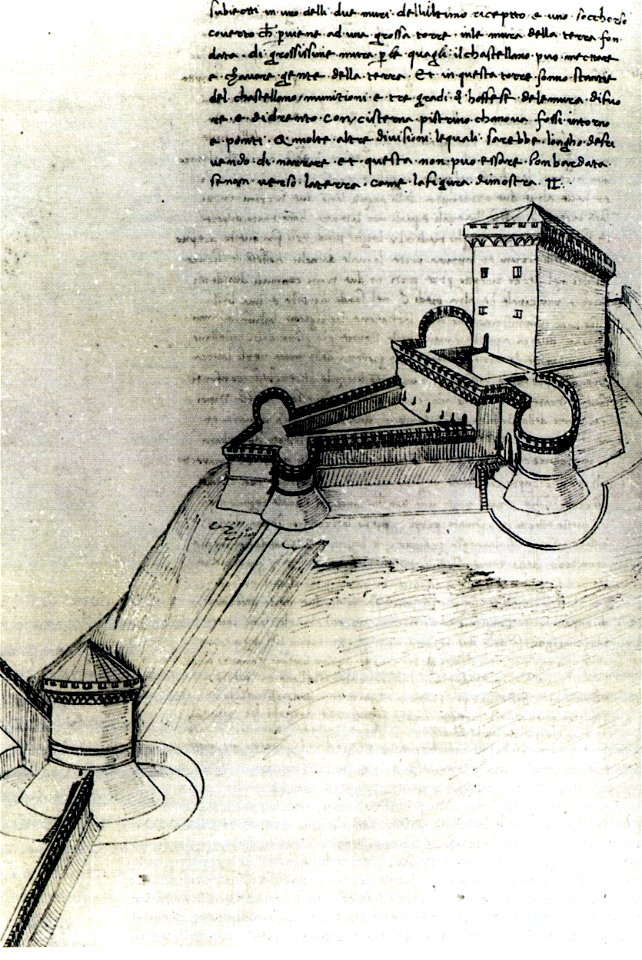 subietti in uno delli due muri dellultimo riceptto e uno sochorso
coverto ch perviene ad una grossa torre inle mura della terra fon
data di grossissime mura per le quagli il chastellano puo mettare
e chavare gente della terra Et in questa torre sonno stantie
del chastellano munitioni e tre gradi di hoffese dele mura di fuo
re e di drento con cisterna pistrino chanova fossi intorno
e ponti & molte altre divisioni le quali sarebbe lungho descri
vendo di narrare et questa non puo essare bombardata
se non verso la terra come la figura dimostra